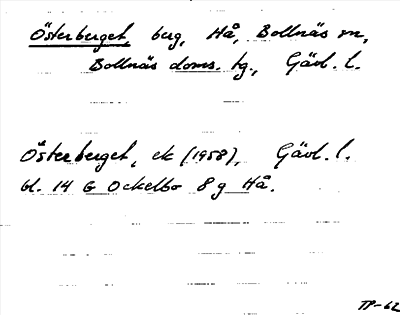 Österberget, berg, Hå, Bollnäs sn,
Bollnäs doms. tg., Gävl. l.
Österberget, ek (1958), Gävl. l.
bl. 14 G Ockelbo 8 g Hå.
TP-62